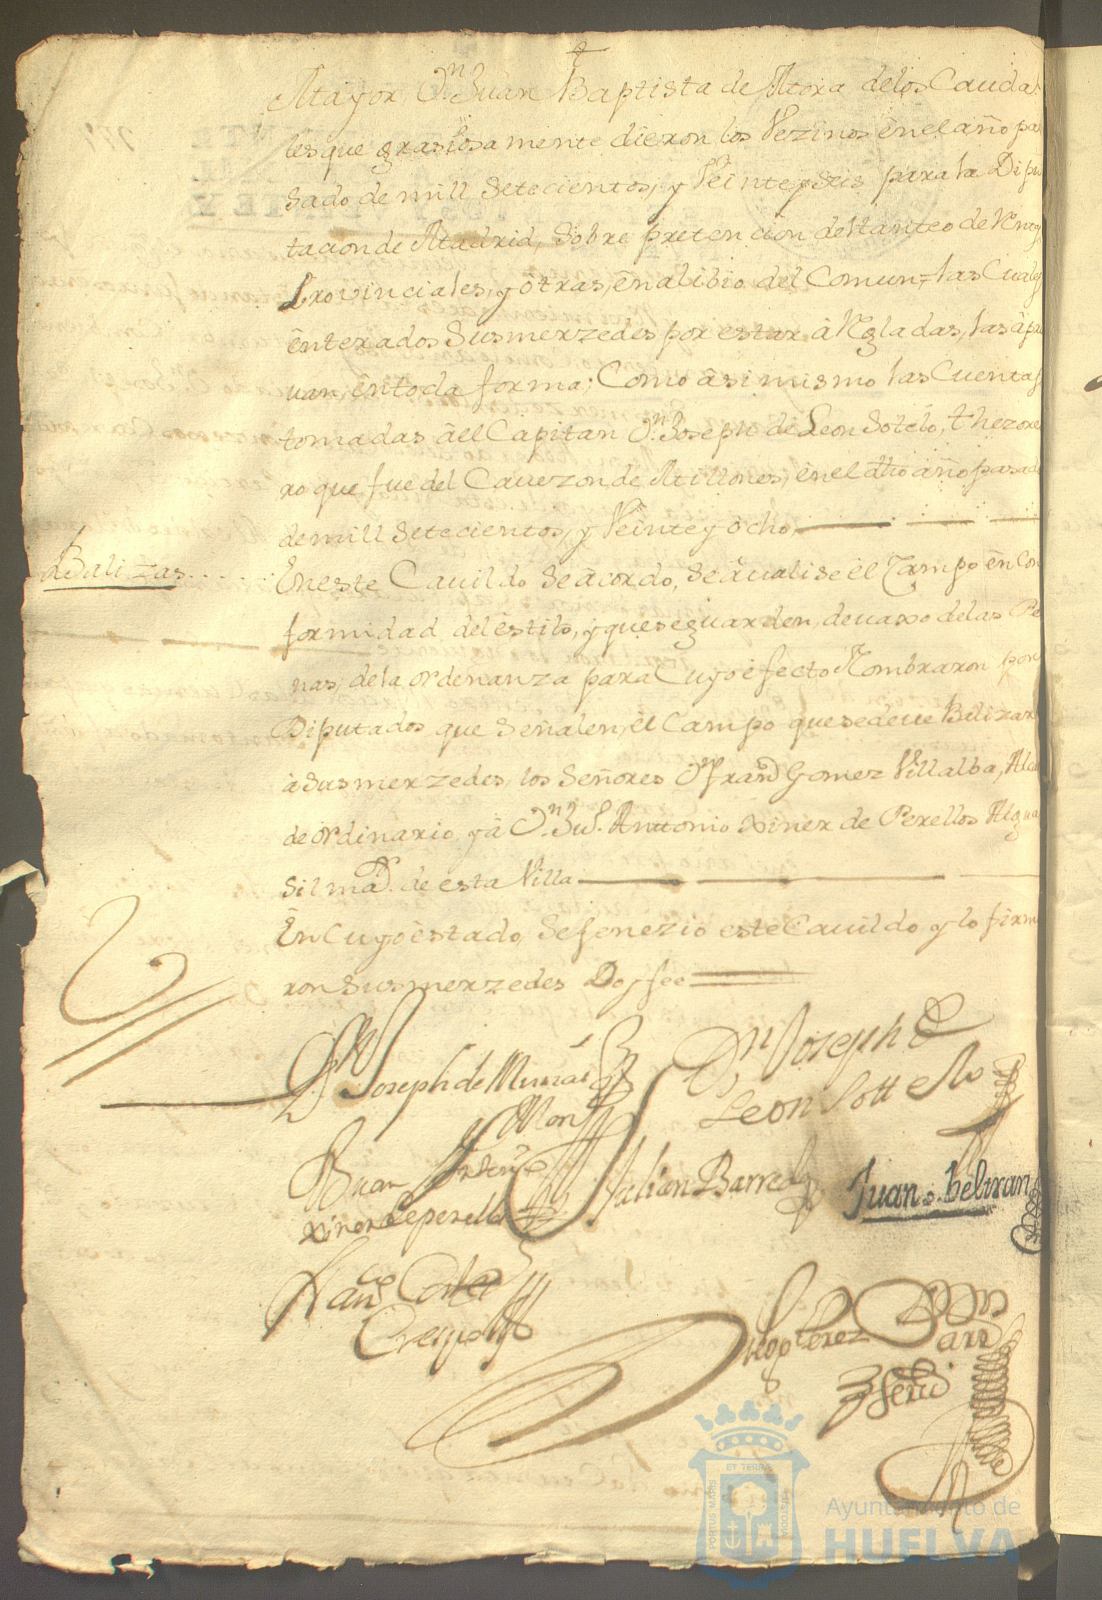 Mayor, Dn Juan Baptista de Mora de los Cauda
les que grasiosamente dieron los Vezinos en el año pa
sado de mill setecientos, y Veinte y seis para la Dipu
tacion de Madrid, sobre pretencion del tanteo de Rentas
Provinciales, y otras, en alibio del Comun, = las Cuales
enterados Susmerzedes por estar àRegladas, las àpru
uan, en toda forma; Como àsi mismo las Cuentas
tomadas àel Capitan Dn Joseph de Leon Sotelo, thezore
ro que fue del Cauezon de Millones, en el dho año pasado
de mill setecientos, y Veinte y ocho,
Balizas
En este Cauildo se àcordo, se àualise el Campo en Con
formidad del estilo, y que se guarden, de uaxo de las Pe
nas, de la ordenanza para Cuyo efecto Nombraron por
Diputados que Señalen, el Campo que se deue Balizar
à Susmerzedes, los Señores Dn Frando Gomez Villalba, Alcal
de ordinario, y à Dn Ju. Anttonio Xiner de Perellos Algua
sil mar. de esta Villa
En Cuyo estado, se fenezio este Cauildo y lo firma
ron Susmerzedes Doy fee
Dn Joseph de
Dn Joseph de
Leon Sottelo
Juan Anton
Xiner de perellos
Julian Barreda
Juan Beltran
Franco Cortes
Crespo
Diego Perez